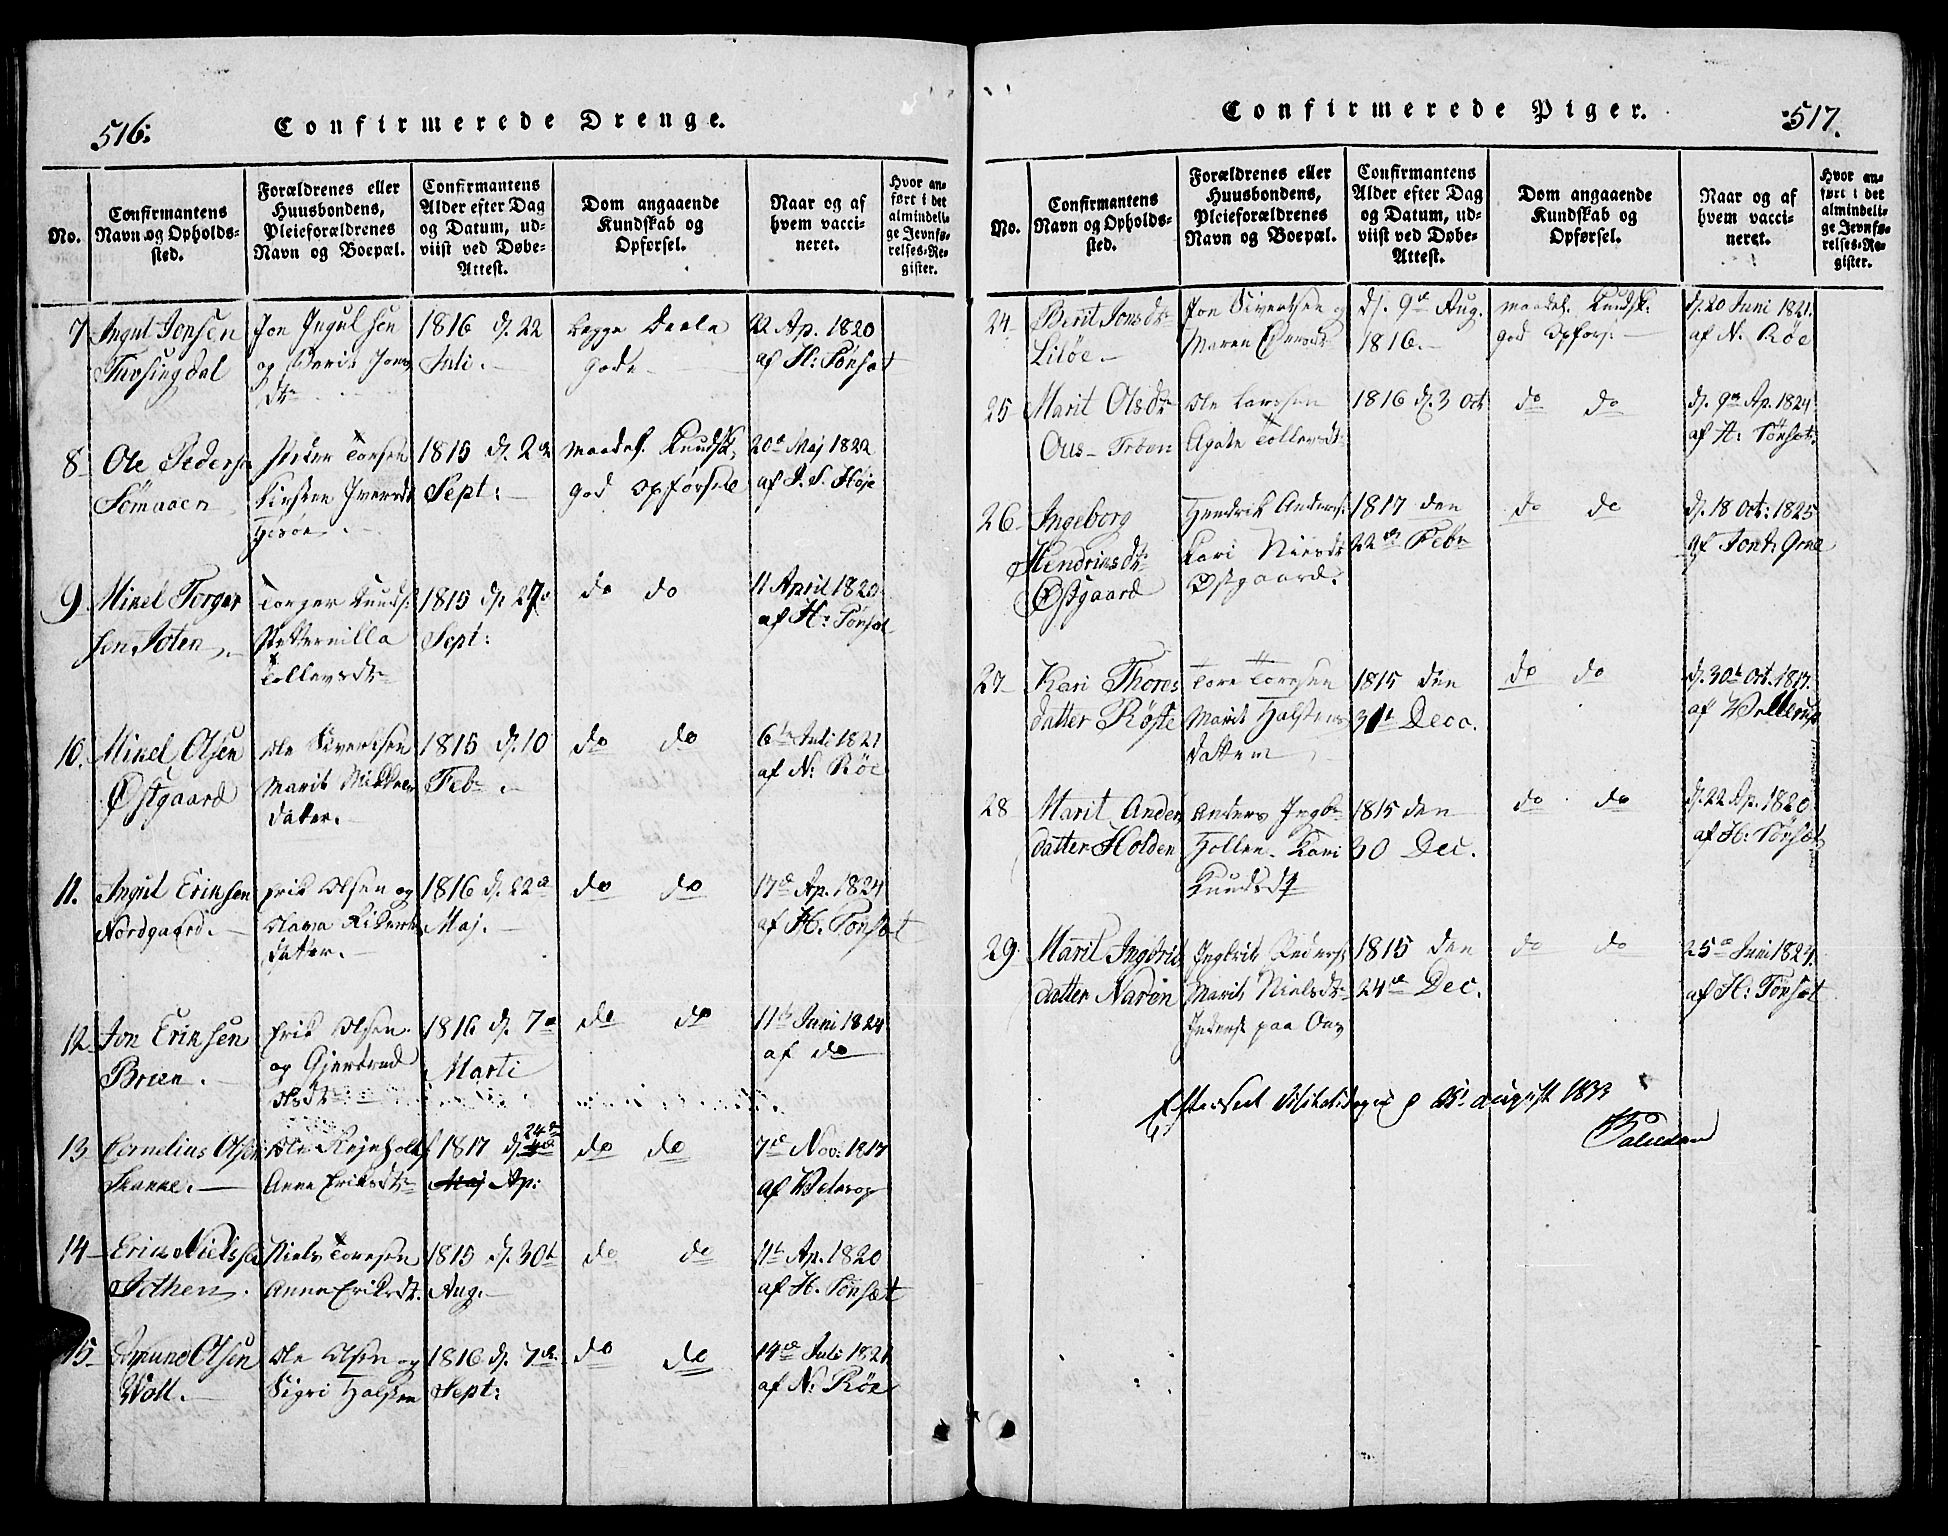 516:
Confirmerede Drenge.
No.
Confirmantens
Navn og Opholds-
sted.
Forældrenes eller
Huusbondens,
Pleieforældrenes
Navn og Boepæl.
Confirmantens
Alder efter Dag
og Datum, ud-
viist ved Døbe-
Attest.
Dom angaaende
Kundskab og
Opførsel.
Naar og af
hvem vacci-
neret.
Hvor an-
ført i det
almindeli-
ge Jevnfø-
relses-Re-
gister.
7
Ingul Jonsen
Tufsingdal
Jon Ingulsen
og Berit Jons
dtr
1816 d. 22
Juli.
begge Deele
gode
22 Ap. 1820
af H: Tønsæt
8
Ole Peders
Sømaaen
Peder
Kirsten Iversdt
1815 d. 2de
Sept:
maadel. Kundsk.
god Opførsel
20de Maj 1822
af J. S. Høje
9
Mikel Torger
sen Joten
Torger Knuds:
Petternilla
Tollevsdtr
1815 d. 27de
Sept:
do do
11 April 1820
af H: Tønsæt
10.
Mikel Olsen
Østgaard
Ole Sivertsen
Marit Mikkels
datter.
1815 d. 10
Febr.
do do
6te Juli 1821
af N: Røe
11.
Ingul Eriksen
Nordgaard.
Erik Olsen og
Olava
datter.
1816 d. 22de
Maj.
do do
17de Ap. 1824
af H. Tønsæt
12
Jon Eriksen
Brien.
Erik Olsen
og Gjertrud
Olsdtr
1816 d. 7de
Marti
do do
11te Juni 1824
af do
13
Cornelius Olsen
Skanke.
Ole
Anne Eriksdtr
1817 d. 24de
Maj Ap:
do do
7de Nov: 1817
af
14
Erik Nielsse
Jothen.
Niels Toresen
Anne Eriksdt.
1815 d. 30te
Aug.
do do
11te Ap. 1820
af H. Tønsæt
15
Amund Olsen
Woll.
Ole Olsen og
Sigri Halsten
1816 d. 7de
Sept:
do do
14de Juli 1821
af N: Røe
Confirmerede Piger.
517.
No.
Confirmantens
Navn og Opholds-
sted.
Forældrenes eller
Huusbondens,
Pleieforældrenes
Navn og Boepæl.
Confirmantens
Alder efter Dag
og Datum, ud-
viist ved Døbe-
Attest.
Dom angaaende
Kundskab og
Opførsel.
Naar og af
hvem vacci-
neret.
Hvor an-
ført i det
almindeli-
ge Jevnfø-
relses-Re-
gister.
24
Berit Jonsdtr
Liløe.
Jon Sivertsen og
Maren
d. 9de Aug.
1816.
maadel. Kundsk:
god Opførs:
d. 20 Juni 1821.
af N. Røe
25
Marit Olsdtr
Ous-Trøen
Ole Larssen
Agate Tollevsdt
1816 d. 3 Oct
do do
d. 9de Ap. 1824
af H: Tønsæt
26
Ingeborg
Hendriksdtr
Østgaard
Hendrik Anders:
Kari
Østgaard.
1817 den
22de Febr
do do
d. 18 Oct: 1825
af
27
Kari Thores
datter Røste
Tore Toresen
Marit Halstens
datter
1815 den
31te Dece.
do do
d. 30te Oct. 1817.
af
28
Marit Anders
datter Holden
Anders
Hollen. Kari
Knudsdt
1815 den
30 Dec.
do do
d. 22 Ap. 1820.
af H: Tønsæt
29.
Marit Ingbrid
datter Narøn
Ingbrit Peders:
Marit Nielsdtr
paa Ous
1815 den
24de Dec.
do do
25de Juni 1824.
af H: Tønsæt
Efterseet Visitatsdagen d August 1833